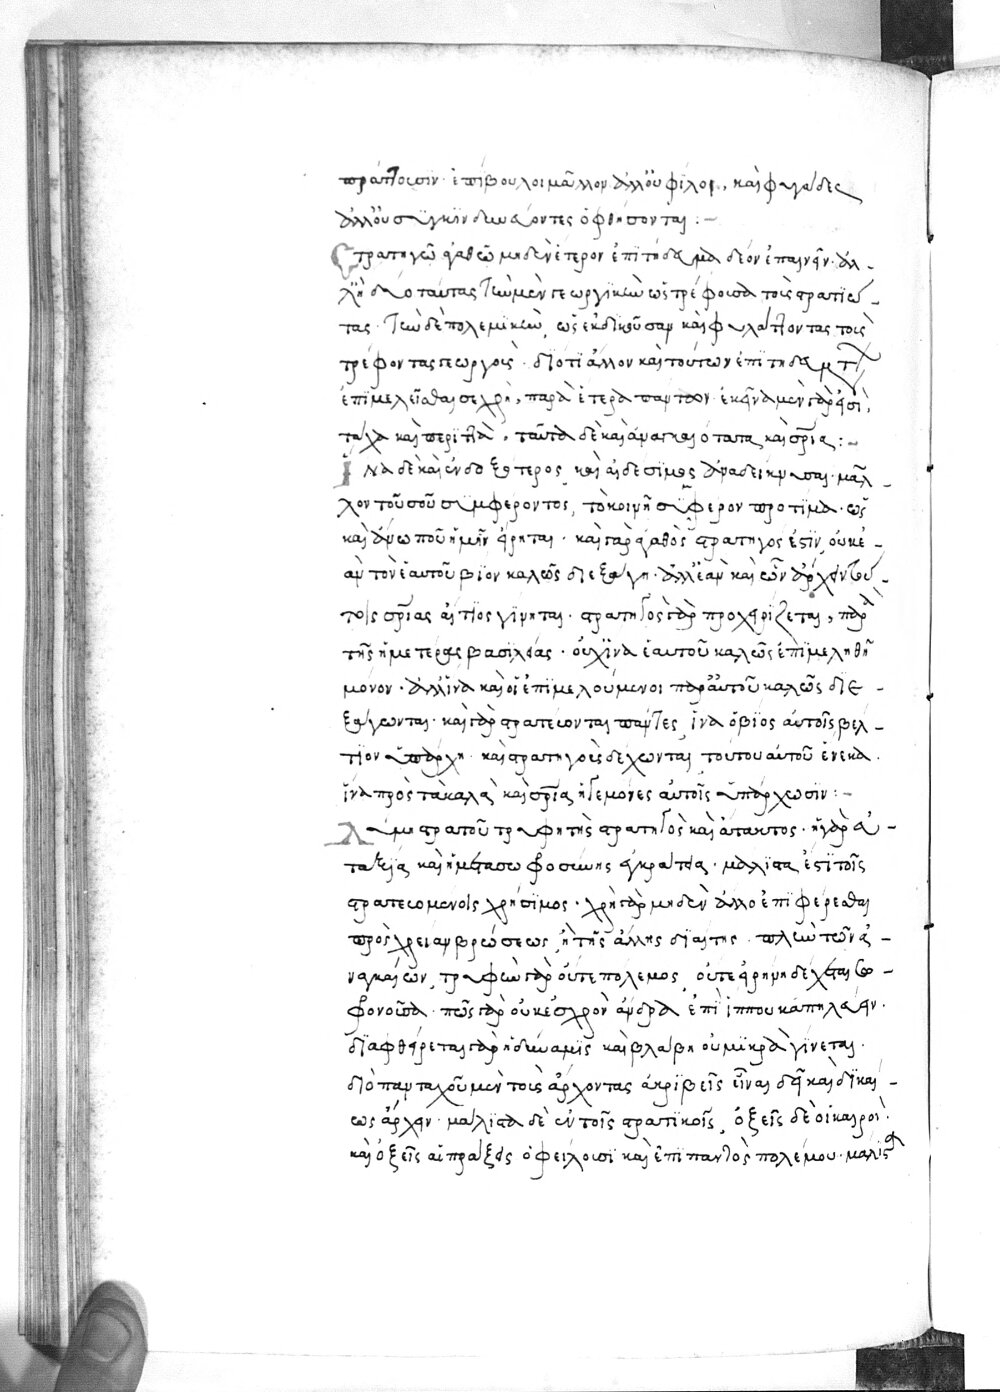 πράττοισιν· ἐπίβουλοι μᾶλλον ἀλλ' οὐ φίλοι, καὶ φυγάδες
ἀλλ' οὐ συγκινδυνεύοντες ὀφθήσονται :-
Στρατηγῶ ἀγαθῶ μηδὲν ἕτερον ἐπιτήδευμα δέον ἐπαινεῖν· ἀλ-
λ' ἢ δύο ταύτας τὴν μὲν γεωργικὴν ὡς τρέφουσα τοὺς στρατιώ-
τας· τὴν δὲ πολεμικὴν, ὡς ἐκδικοῦσαν καὶ φυλάττοντας τοὺς
τρέφοντας γεωργοὺς· διότι ἄλλον καὶ τούτων ἐπιτήδευμά τι
ἐπιμελεῖσθαι σε χρὴ, παρὰ ἕτερα πάντων· ἐκεῖνα μὲν γὰρ εἰσὶ,
τάχα καὶ περιττὰ, ταῦτα δὲ καὶ ἀναγκαιότατα καὶ σωτηρίας :-
Ἵνα δὲ καὶ ἐνδοξότερος, καὶ αἰδέσιμος ἀναδείκνυσαι· μᾶλ-
λον τοῦ σοῦ συμφέροντος, τὸ κοινῆ συμφέρον προτίμα· ὡς
καὶ ἄνω που ἡμῖν εἴρηται· καὶ γὰρ ἀγαθὸς στρατηγὸς ἐστὶν, οὐκ ἐ-
ὰν τὸν ἑαυτοῦ βίον καλῶς διεξάγη· ἀλλ' ἐὰν καὶ ὧν ἄρχειν
τοῖς σωτηρίας αἴτιος γίνηται· στρατηγὸς γὰρ προχειρίζεται, παρὰ
τῆς ἡμετέρας βασιλείας· οὐχ ἵνα ἑαυτοῦ καλῶς ἐπιμεληθῆ
μόνον· ἀλλ' ἵνα καὶ οἱ ἐπιμελούμενοι παρ' αὐτοῦ καλῶς διε-
ξάγωνται· καὶ γὰρ στρατεύονται πάντες, ἵνα ὁ βίος αὐτοῖς βελ-
τίον ὑπάρχη· καὶ στρατηγοὺς δέχωνται τούτου αὐτοῦ ἕνεκα·
ἵνα πρὸς τὰ καλὰ καὶ σωτηρίας ἡγεμόνες αὐτοῖς ὑπάρχωσιν :-
Λύμη στρατοῦ τρυφητὴς στρατηγὸς καὶ ἄτακτος· ἡ γὰρ εὐ-
ταξία καὶ ἡ μετὰ σωφροσύνης ἐγκράτεια· μάλιστα ἐστὶ τοῖς
στρατευομένοις χρήσιμος· χρὴ γὰρ μηδὲν ἄλλο ἐπιφέρεσθαι
πρὸς χρείαν βρώσεως, ἢ τῆς ἄλλης διαίτης· πλὴν τῶν ἀ-
ναγκαίων, τρυφὴν γὰρ οὔτε πόλεμος, οὔτε εἰρήνη δέχεται σω-
φρονοῦσα· πῶς γὰρ οὐκ αἰσχρὸν ἄνδρα ἐπὶ ἵππου καπηλεύειν·
διαφθείρεται γὰρ ἡ δύναμις καὶ βλάβη οὐ μικρὰ γίνεται·
διὸ πανταχοῦ μὲν τοὺς ἄρχοντας ἀκριβεῖς εἶναι δεῖ καὶ δικαί-
ως ἄρχειν· μάλιστα δὲ ἐν τοῖς στρατικοῖς, ὀξεῖς δὲ οἱ καιροὶ·
καὶ ὀξεῖς αἱ πράξεις ὀφείλουσι καὶ ἐπὶ παντὸς πολέμου· μάλιστα